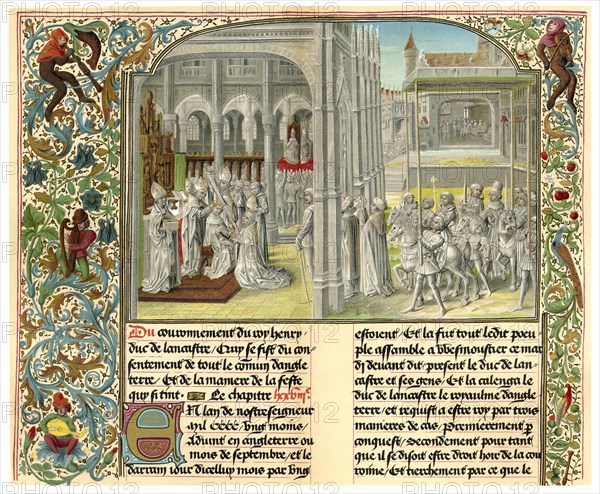 Du couronnement du roy henry
duc de lancastre / Quy se fist du con
sentement de tout le comun dangle
terre / Et de la maniere de la feste
quy si tint. Le chapitre lxxviiie.
En lan de nostreseigneur
mil CCCC vng moins /
Adunt en angleterre ou
mois de septembre / et le
darrain iour dicelluy mois par vng
estoient / Et la fut tout ledit peu/
ple assamble a vbesmoustier ce mar
dj deuant dit present le duc de lan/
castre et ses gens / Et la calenga le
duc de lancastre le royaulme dangle
terre / et requist a estre roy par trois
manieres de cas / Premierement p
conquest / Secondement pour tant
que il se disoit estre droit hoir de la cou
ronne / Et tierchement par ce que le